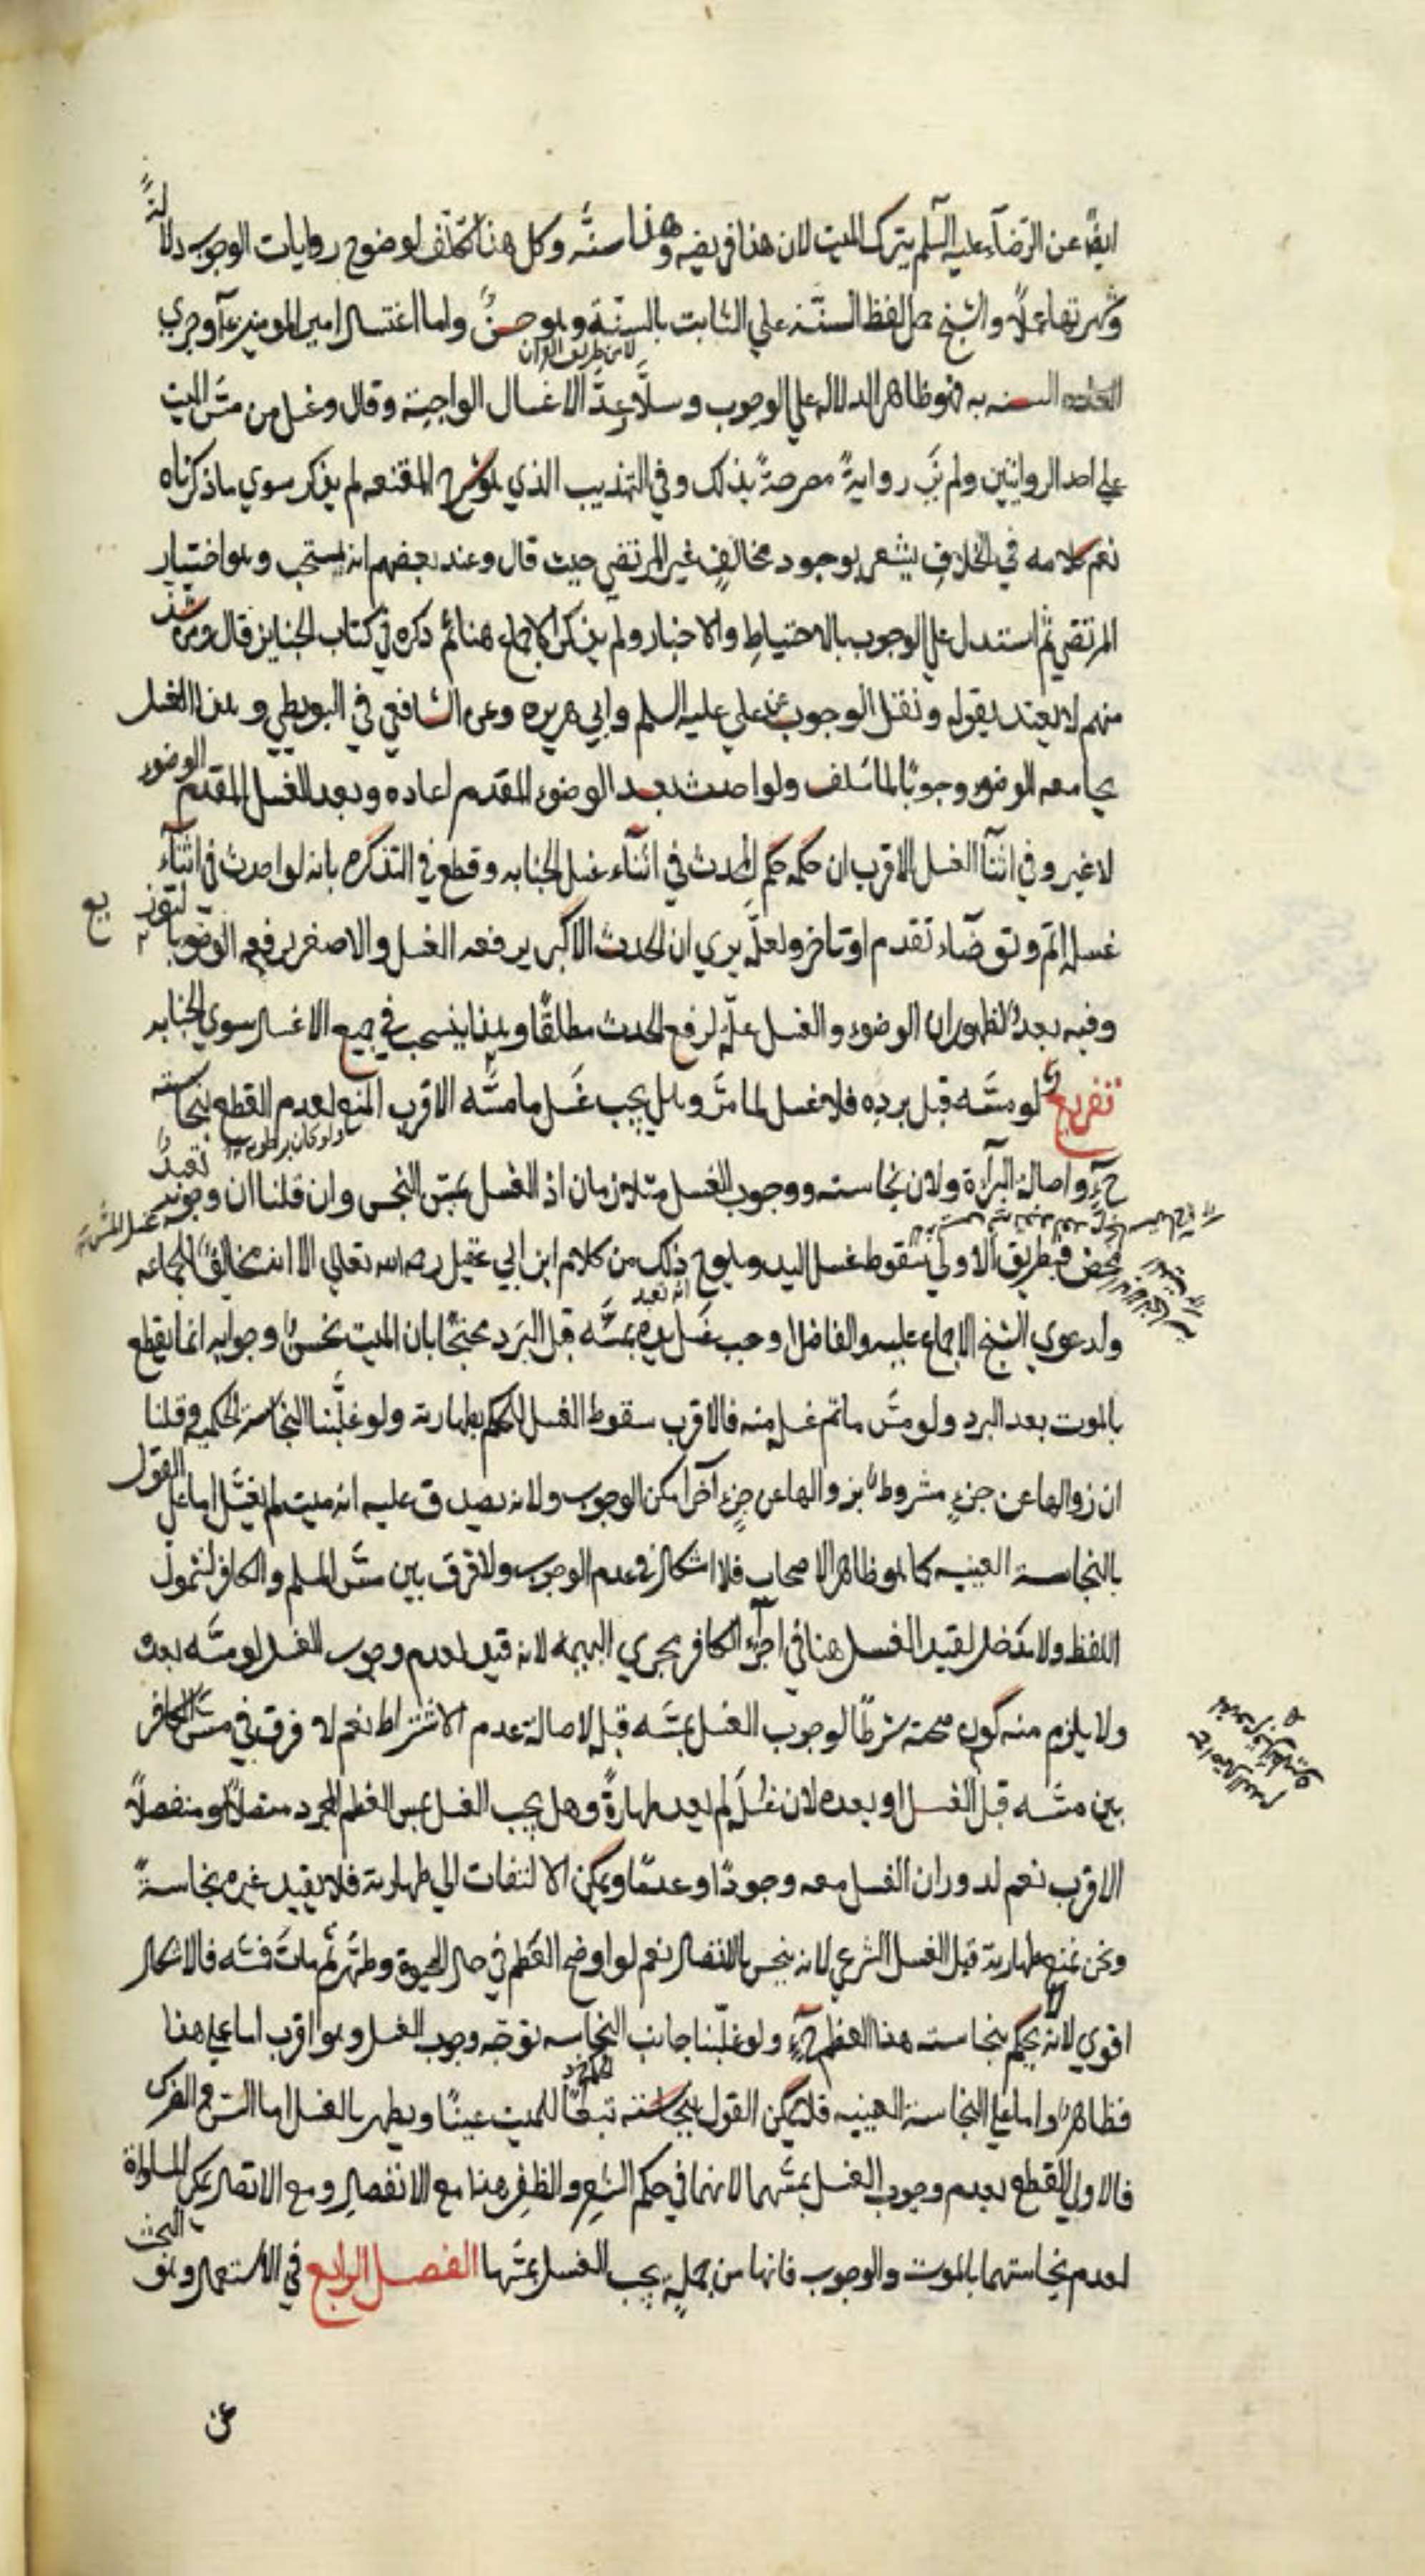 ايضًا عن الرضاء عليه السلم يترك الميت لان هذا فريضه وهذا سنّه وكل هذا تكلّف لوضوح روايات الوجوب دلالةً
وشهرتها عملًا والشيخ حمل لفظ السنّة علي الثابت بالسنّة وهو حسنٌ واما اغتسال امير المومنين ع آ وجري
لا من طريق القرآن
السنه به فهو ظاهر الدلاله علي الوجوب وسلّار عدّ الاغسال الواجبة وقال وغسل من مسّ الميت
علي احد الروايتين ولم نَرَ روايةً مصرحةً بذلك وفي التهذيب الذي هو شرح المقنعه لم يذكر سوي ماذكرناه
نعم كلامه في الخلاف يشعر بوجود مخالفٍ غير المرتضي حيث قال وعند بعضهم انه يستحب وهو اختيار
المرتضي ثم استدل علي الوجوب بالاحتياط والاخبار ولم يذكر الاجماع هنا ثم ذكره في كتاب الجنايز قال ومن شذّ
منهم لا يعتد بقوله ونقل الوجوب عن علي عليه السلم وابي هريره وعن الشافعي في البويطي وهذا الغسل
يجامعه الوضوء وجوبًا لما سَلف ولو احدث بعد الوضوء المقدم اعاده وبعد الغسل المقدم الوضوء
لا غير وفي اثنآ الغسل الاقرب ان حكمه حكم الحدث في اثنآء غسل الجنابه وقطع في التذكره بانه لو احدث في اثنآء
غسله اتم وتوضّاء تقدم او تاخر ولعلّه يري ان الحدث الاكبر يرفعه الغسل والاصغر يرفعه الوضوء بالتوزيع
وفيه بعدٌ لظهور ان الوضوء والغسل علّة لرفع الحدث مطلقًا وهذا ينسحب في جميع الاغسال سوي الجنابه
تفريعٌ لو مسّه قبل برده فلا غسل لما مرّ وهل يجب غَسل ما مسّه الاقرب المنع لعدم القطع بنجاسته
ولو كان برطوبه
ح واصالة البرآءة ولان نجاسته ووجوب الغسل متلازمان اذ الغسل بمسّ النجس وان قلنا ان وجوبه تعبدٌ
محض فبطريق الاولي سقوط غسل اليد ويلوح ذلك من كلام ابن ابي عقيل رحمه الله تعالي الا انه يخالف الجماعه
ولدعوي الشيخ الاجماع عليه والفاضل اوجب غَسل يده بمسّه قبل البَرد محتجًا بان الميت نجسٌ وجوابه انما يقطع
بالموت بعد البرد ولو مسّ ماتم غسله منه فالاقرب سقوط الغسل للحكم بطهارته ولو غلّبنا النجاسة الحكميه وقلنا
ان زوالها عن جزءٍ مشروطٌ بزوالها عن جزءٍ آخر امكن الوجوب ولانه يصدق عليه انه ميت لم يغسّل اما علي القول
بالنجاسة العينيه كما هو ظاهر الاصحاب فلا اشكال في عدم الوجوب ولا فرق بين مسّ المسلم والكافر لشمول
اللفظ ولا مَدخل لقيد الغسل هنا في اجزآء الكافر مجري البهيمه لانه قيد لعدم وجوب الغسل لو مسّه بعده
ولا يلزم منه كون صحته شرطًا لوجوب الغسل بمسّه قبل لاصالة عدم الاشتراط نعم لا فرق في مسّ الكافر
بين مسّه قبل الغسل او بعده لان غسله لم يفد طهارةً وهل يجب الغسل بمس العظم المجرد متصلًا او منفصلًا
الاقرب نعم لدوران الغسل معه وجودًا وعدمًا ويمكن الالتفات الي طهارته فلا يفيد غيره نجاسةً
ونحن نمنع طهارته قبل الغسل الشرعي لانه ينجس بالاتصال نعم لو اوضح العَظم في حال الحيوة وطهّر ثم ماتَ فمسّه فالاشكال
اقوي لانّه لا يحكم بنجاسته هذا العظم ح ولو غلّبنا جانب النجاسه توجّه وجوب الغسل وهو اقرب اما علي هذا
فظاهرٌ واما علي النجاسة العينيه فلا يمكن القول بنجاسته تبعًا للميت عينًا ويطهر بالغسل اما السن والضرس
فالاولي القطع بعدم وجوب الغسل بمسّهما لانهما في حكم الشعر والظفر هذا مع الانفصال ومع الاتصال يمكن المساواة
لعدم نجاستهما بالموت والوجوب فانها من جملةٍ يجب الغسل بمسّها الفصل الرابع في الاستعمال وهو البحث
عن